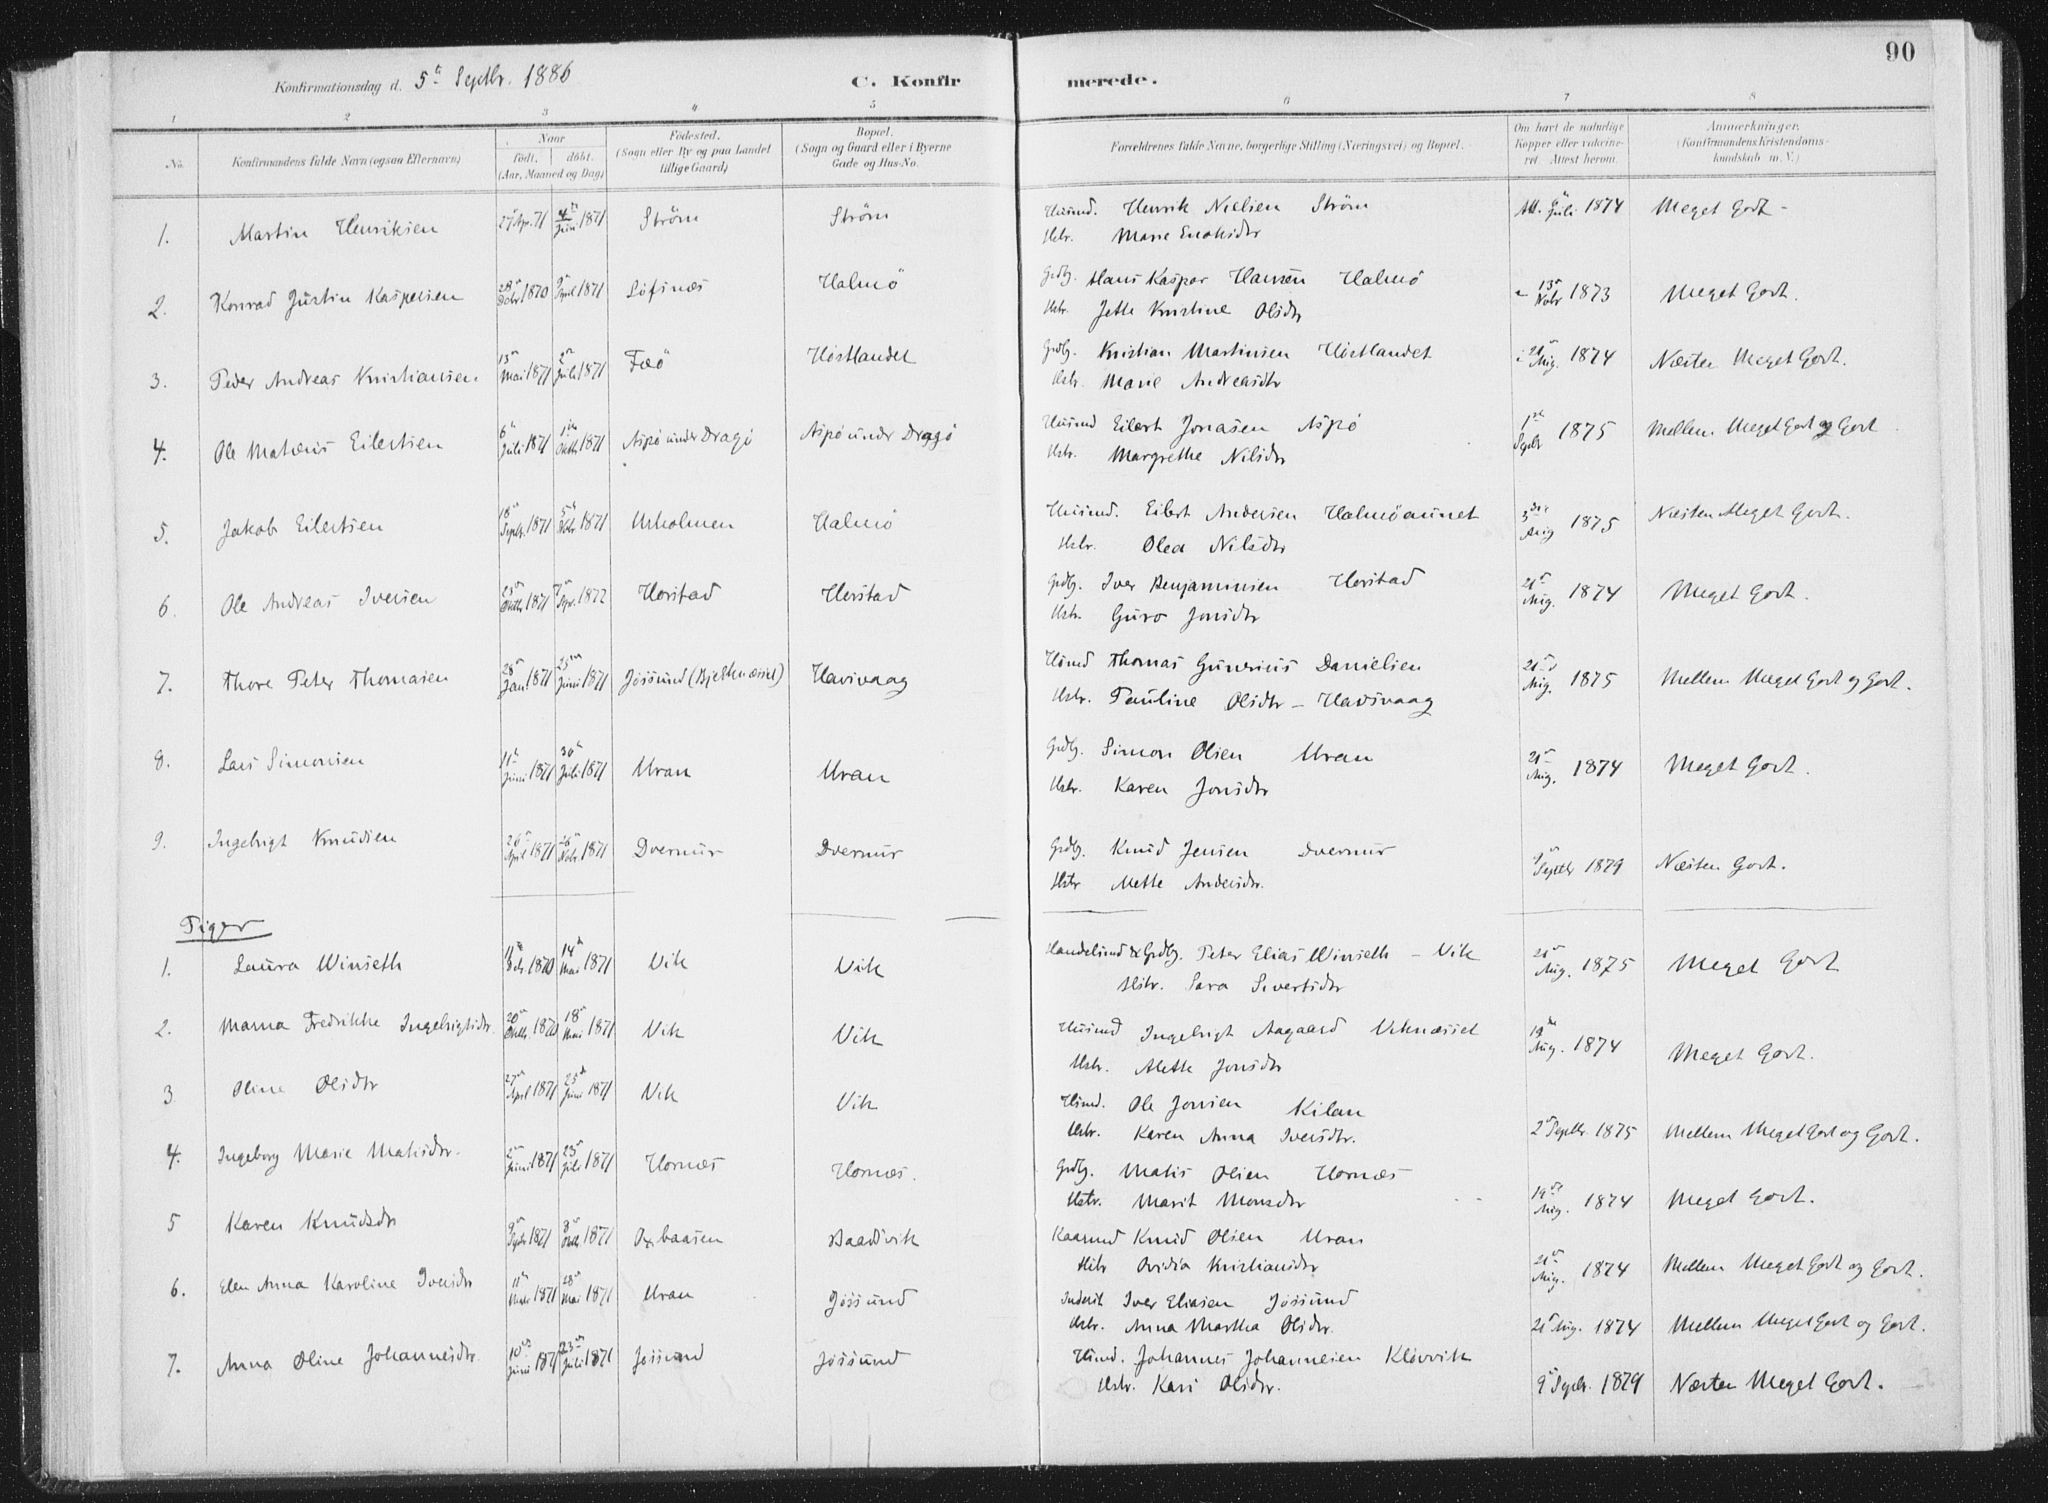 90
Konfirmationsdag d. 5te Septbr. 1886 C. Konfirmerede.
1 2 3 4 5 6 7 8
No. Konfirmandens fulde Navn (ogsaa Efternavn) Naar født. døbt. (Aar, Maaned og Dag) Fødested. (Sogn eller By og paa Landet tillige Gaard) Bopæl. (Sogn og Gaard eller i Byerne Gade og Hus-No. Forældrenes fulde Navne, borgerlige Stilling (Næringsvei) og Bopæl. Om havt de naturlige Kopper eller vakcineret. Attest herom. Anmærkninger. (Konfirmandens Kristendomskundskab m. V.)
1. Martin Henriksen 27 Apr. 71 4de Juni 1871 Strøm Strøm Husmd. Henrik Nielsen Strøm Att. Juli 1874 Meget Godt -
Hstr. Marie Enoksdtr
2. Konrad Justin Kaspersen 28 Decbr 1870 9 April 1871 Löfsnæs Halmö Grdbr. Hans Kaspar Hansen Halmö - 13de Novbr 1873 Meget Godt.
Hstr. Jette Kristine Olsdtr
3. Peder Andreas Kristiansen. 13de Mai 1871 2den Juli 1871 Faö Höstlandet Grdbr. Kristian Martinsen Höstlandet 21de Aug. 1874 Næsten Meget Godt.
Hstr. Marie Andreasdtr
4. Ole Mateus Eilertsen 6te Juli 1871 1ste Octbr 1871 Aspö under Dragö Aspö under Dragö Husmd Eilert Jonasen Aspö 1ste Septbr 1875 Mellem Meget Godt og Godt
Hstr. Margrethe Nilsdtr
5. Jakob Eilertsen 18de Septbr. 1871 5te Novbr. 1871 Urholmen Halmö Husmd. Eilert Andersen Halmöaunet 3die Aug 1875 Næsten Meget Godt.
Hstr. Olea Nilsdtr
6. Ole Andreas Iversen 25de Octbr 1871 1872 Horstad Horstad Grdbr. Iver Benjaminsen Horstad 21de Aug. 1874 Meget Godt.
Hstr. Guro Jonsdtr
7. Thore Peter Thomasen 28de Jan. 1871 25de Juni 1871 Jössund (Bjelknæsset) Havsvaag Husmd Thomas Gunerius Danielsen 21de Aug. 1875 Mellem Meget Godt og Godt.
Hstr. Pauline Olsdtr - Havsvaag
8. Lars Simonsen 11te Juni 1871 30te Juli 1871 Uran Uran Grdbr. Simon Olsen Uran 21de Aug. 1874 Meget Godt.
Hstr. Karen Jonsdtr
9. Ingebrigt Knudsen 26de April 1871 26de Novbr. 1871 Dvernur Dvernur Grdbr. Knud Jensen Dvernur 9de Septbr 1879 Næsten Godt.
Hstr Mette Andersdtr.
Piger
1. Laura Winseth 11te 1870 14de Mai 1871 Vik Vik Handelsmd & Grdbr. Peter Elias Winseth - Vik 21de Aug. 1875 Meget Godt
Hstr. Sara Sivertsdtr
2. Marna Fredrikke Ingebrigtsdtr. 20de Octbr. 1870 18de Mai 1871 Vik Vik Husmd Ingebrigt Aagaard Viknæsset 19de Aug. 1874 Meget Godt.
Hstr. Alette Jonsdtr
3. Oline Olsdtr 27de April 1871 25de Juni 1871 Vik Vik Husmd. Ole Jonsen Kilan
Hstr. Karen Anna Iversdtr. 2de Septbr. 1875 Mellem Meget Godt og Godt.
4. Ingeborg Marie Matisdtr. 2den Juni 1871 23de Juli 1871 Hornæs Hornæs. Grdbr. Matis Olsen Hornæs
Hstr. Marit Monsdtr 19de Aug. 1874 Meget Godt.
5 Karen Knudsdtr 9de Septbr 1871 8de Octbr. 1871 Oxbaasen Baadsvik Kaarmd Knud Olsen Uran
Hstr Ovidia Kristiansdtr 21de Aug. 1874 Mellem Meget Godt og Godt.
6. Elen Anna Karoline Iversdtr 11te Marts 1871 28de Mai 1871 Uran Jössund Inderst Iver Eliasen Jössund
Hstr. Anna Martha Olsdtr. 21de Aug. 1874 Mellem Meget Godt og Godt.
7. Anna Oline Johannesdtr. 10de Juni 1871 23de Juli 1871 Jössund Jössund Husmd. Johannes Johannesen Klövvik
Hstr. Kari Olsdtr. 9de Septbr. 1879 Næsten Meget Godt.